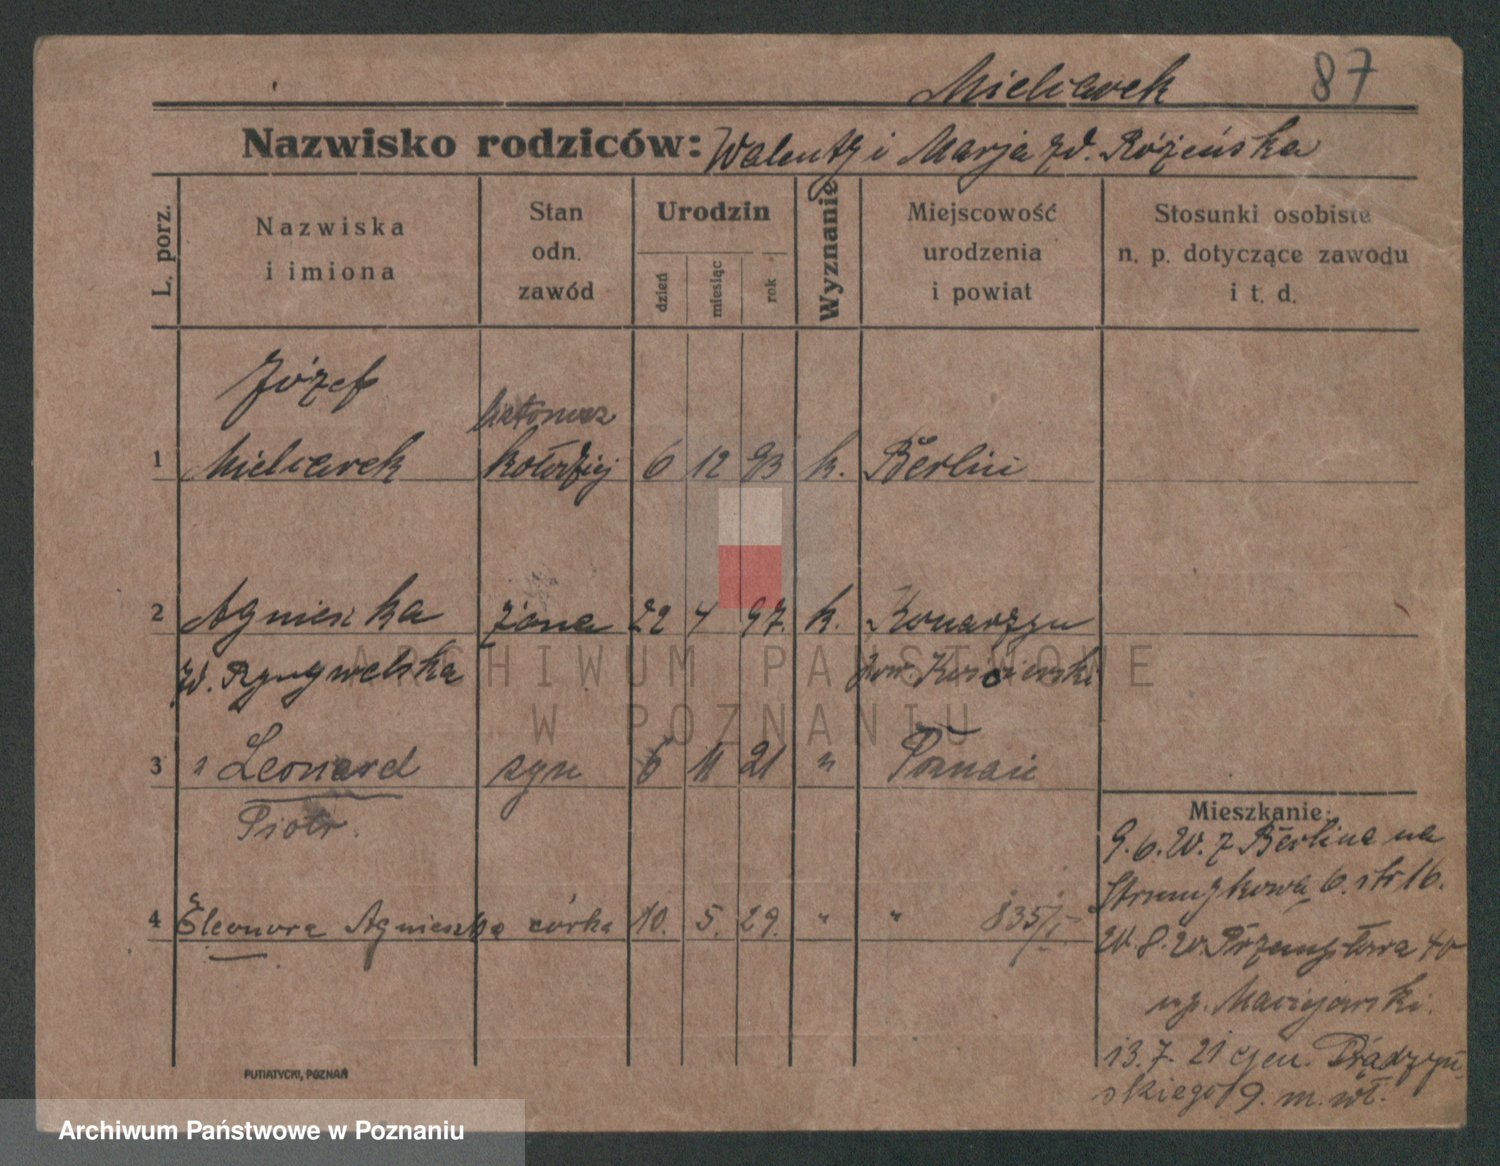 Mielcarek 87
Nazwisko rodziców: Walenty i Marja zd. Różeńska
L. porz.
Nazwiska
i imiona
Stan
odn.
zawód
Urodzin
dzień
miesiąc
rok
Wyznanie
Miejscowość
urodzenia
i powiat
Stosunki osobiste
n. p. dotyczące zawodu
i t. d.
Józef
1 Mielcarek kołodziej 6 12 93 k. Berlin
2 Agnieszka żona 22 4 97. k. Konarzyn
zd. pow. Kościerski
3 " Leonard syn 6 11 21 " Poznań
Piotr.
4 Eleonora Agnieszka córka 10. 5. 29. " " 835/I
Mieszkanie:
9.6.20. z Berlina na
Strumykowa 6. str 16.
20.8.20. Przemysłowa 40
u p. Maciejewski.
13.7.21 Gen. Prądzyń-
skiego 9. m. wł.
PUTIATYCKI, POZNAŃ
ARCHIWUM PAŃSTWOWE
W POZNANIU
Archiwum Państwowe w Poznaniu